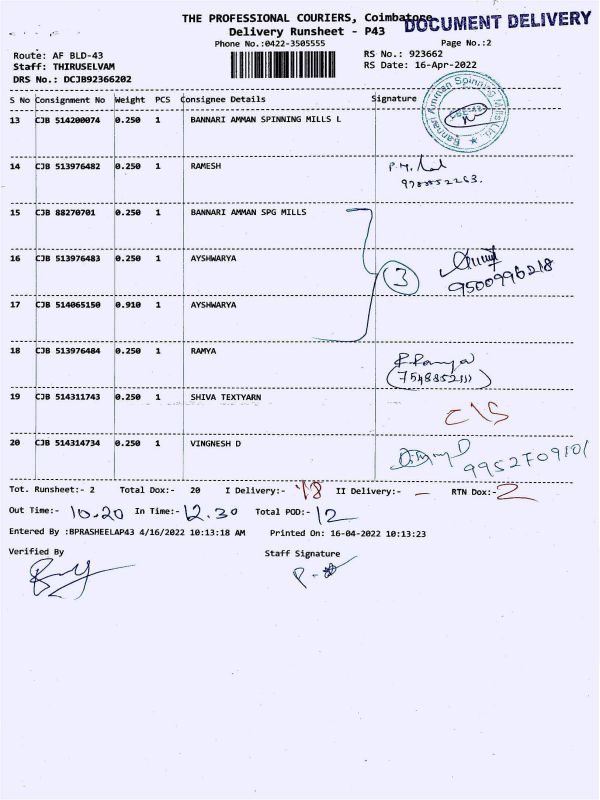 THE PROFESSIONAL COURIERS, Coimbatore
DOCUMENT DELIVERY
Delivery Runsheet - P43
Phone No.:0422-3505555
Page No.:2
Route: AF BLD-43
RS No.: 923662
Staff: THIRUSELVAM
RS Date: 16-Apr-2022
DRS No.: DCJB92366202
S No Consignment No Weight PCS Consignee Details Signature
Bannari Amman Spinning Mills Ltd.
13 CJB 514200074 0.250 1 BANNARI AMMAN SPINNING MILLS L
14 CJB 513976482 0.250 1 RAMESH
15 CJB 88270701 0.250 1 BANNARI AMMAN SPG MILLS
16 CJB 513976483 0.250 1 AYSHWARYA
3
9500996218
17 CJB 514065150 0.910 1 AYSHWARYA
18 CJB 513976484 0.250 1 RAMYA
R. Ramya
19 CJB 514311743 0.250 1 SHIVA TEXTYARN
C/S
20 CJB 514314734 0.250 1 VINGNESH D
9952709101
Tot. Runsheet:- 2 Total Dox:- 20 I Delivery:- 18 II Delivery:- - RTN Dox:- 2
Out Time:- 10.20 In Time:- 12.30 Total POD:- 12
Entered By :BPRASHEELAP43 4/16/2022 10:13:18 AM Printed On: 16-04-2022 10:13:23
Verified By Staff Signature